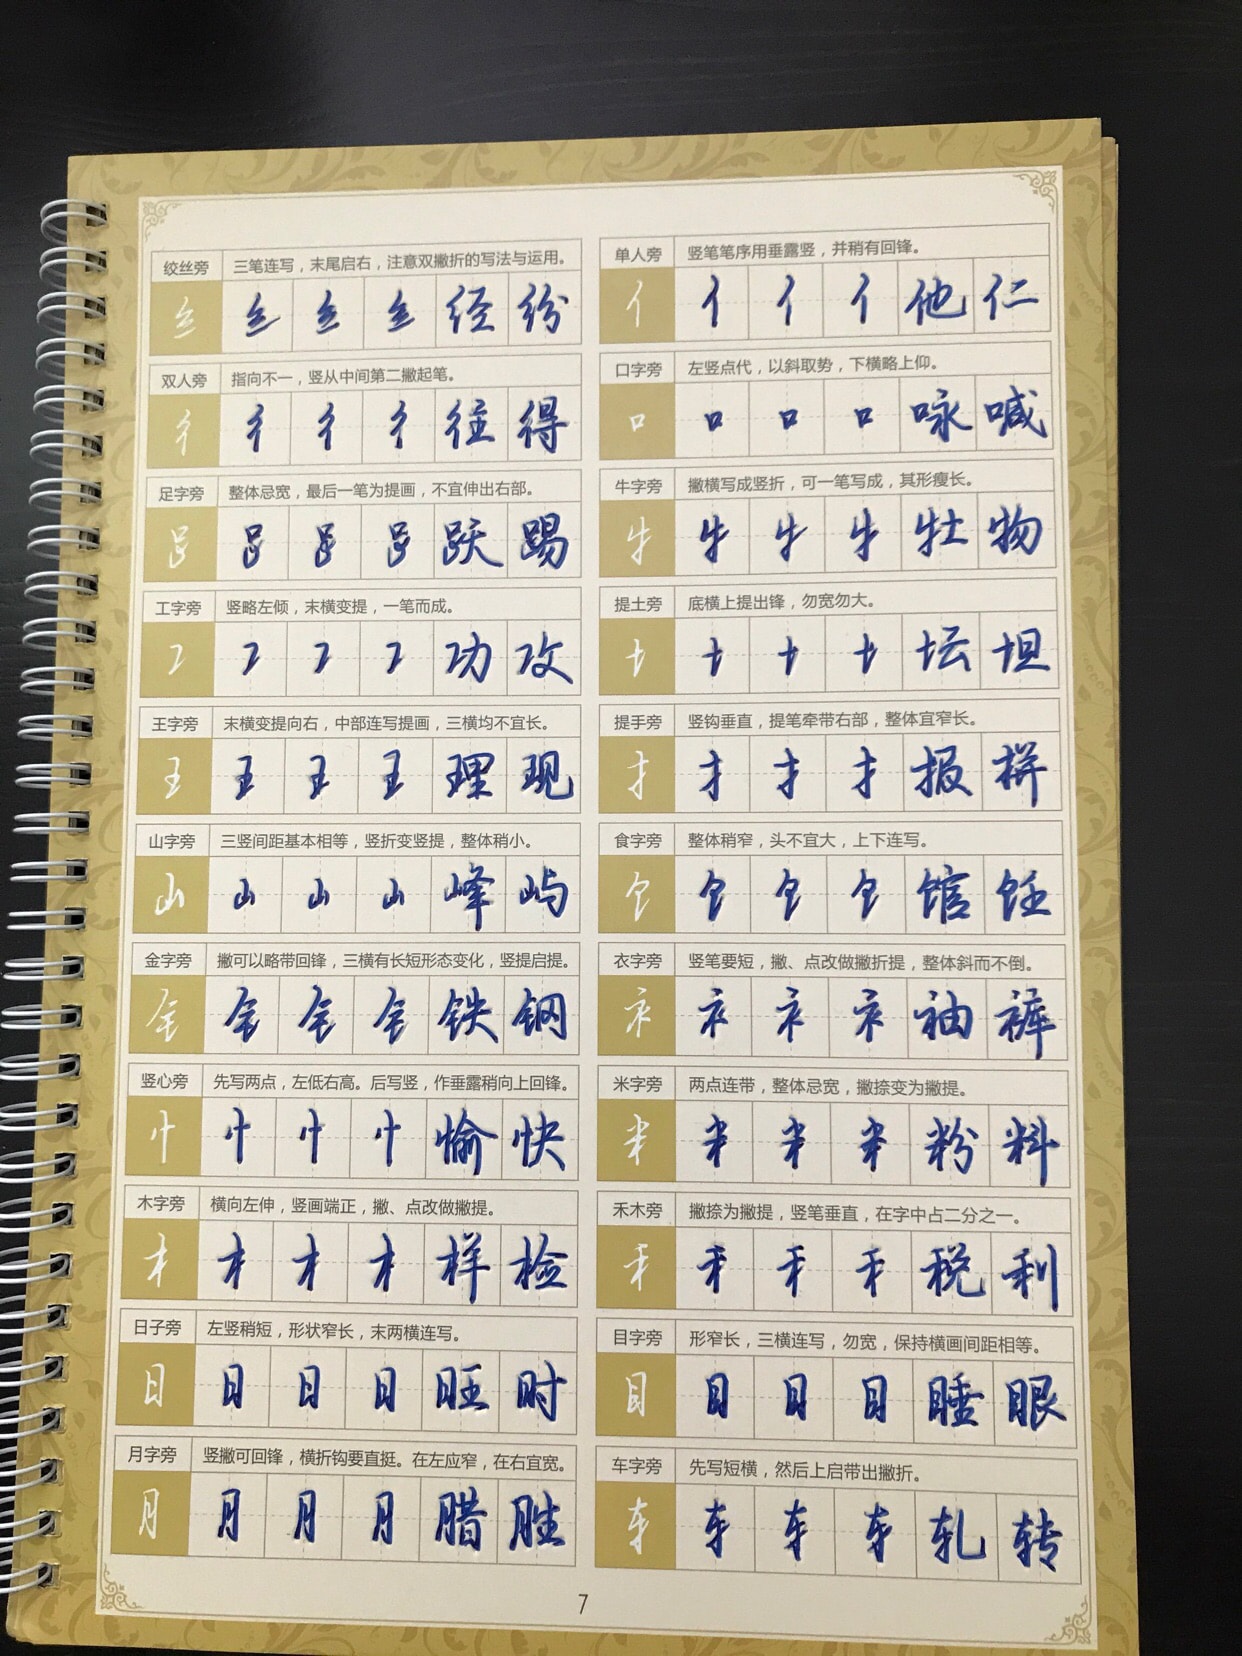 绞丝旁 三笔连写，末尾启右，注意双撇折的写法与运用。
纟 纟 纟 纟 经 纷
双人旁 指向不一，竖从中间第二撇起笔。
彳 彳 彳 彳 往 得
足字旁 整体忌宽，最后一笔为提画，不宜伸出右部。
𧾷 𧾷 𧾷 𧾷 跃 踢
工字旁 竖略左倾，末横变提，一笔而成。
工 工 工 工 功 攻
王字旁 末横变提向右，中部连写提画，三横均不宜长。
王 王 王 王 理 现
山字旁 三竖间距基本相等，竖折变竖提，整体稍小。
山 山 山 山 峰 屿
金字旁 撇可以略带回锋，三横有长短形态变化，竖提启提。
钅 钅 钅 钅 铁 钢
竖心旁 先写两点，左低右高。后写竖，作垂露稍向上回锋。
忄 忄 忄 忄 愉 快
木字旁 横向左伸，竖画端正，撇、点改做撇提。
木 木 木 木 样 检
日子旁 左竖稍短，形状窄长，末两横连写。
日 日 日 日 旺 时
月字旁 竖撇可回锋，横折钩要直挺。在左应窄，在右宜宽。
月 月 月 月 腊 胜
单人旁 竖笔笔序用垂露竖，并稍有回锋。
亻 亻 亻 亻 他 仁
口字旁 左竖点代，以斜取势，下横略上仰。
口 口 口 口 咏 喊
牛字旁 撇横写成竖折，可一笔写成，其形瘦长。
牜 牜 牜 牜 牡 物
提土旁 底横上提出锋，勿宽勿大。
土 土 土 土 坛 坦
提手旁 竖钩垂直，提笔牵带右部，整体宜窄长。
扌 扌 扌 扌 报 拼
食字旁 整体稍窄，头不宜大，上下连写。
饣 饣 饣 饣 馆 饪
衣字旁 竖笔要短，撇、点改做撇折提，整体斜而不倒。
衤 衤 衤 衤 袖 裤
米字旁 两点连带，整体忌宽，撇捺变为撇提。
米 米 米 米 粉 料
禾木旁 撇捺为撇提，竖笔垂直，在字中占二分之一。
禾 禾 禾 禾 税 利
目字旁 形窄长，三横连写，勿宽，保持横画间距相等。
目 目 目 目 睡 眼
车字旁 先写短横，然后上启带出撇折。
车 车 车 车 轧 转
7